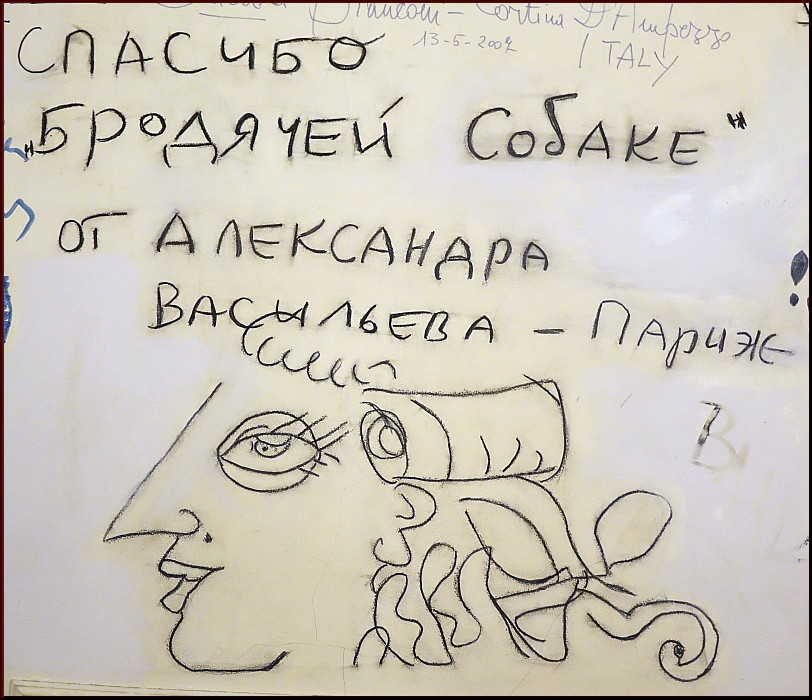 Cortina D'Ampezzo
13-5-2007
ITALY
СПАСИБО
„БРОДЯЧЕЙ СОБАКЕ"
ОТ АЛЕКСАНДРА
ВАСИЛЬЕВА – ПАРИЖ
В